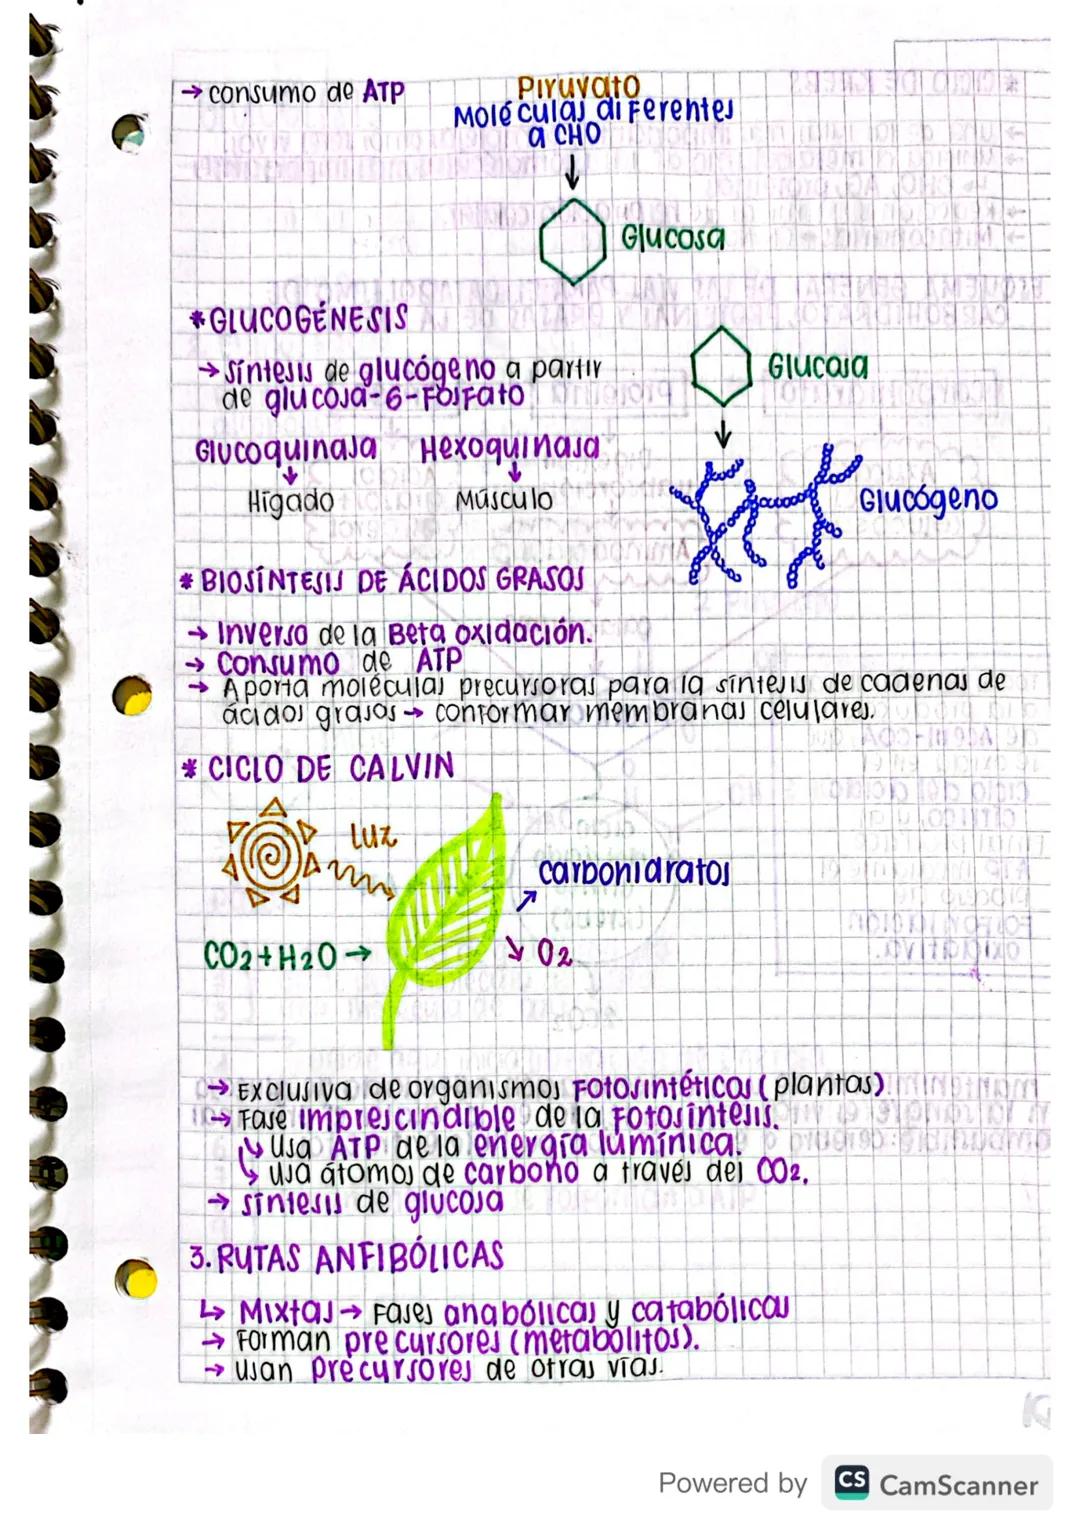 → consumo de ATP
Piruvato
Moléculas diferentes
a CHO
Glucosa
* GLUCOGÉNESIS
→ síntesis de glucógeno a partir
de glucosa-6-Fosfato
Glucosa
Glucoquinasa Hexoquinasa
Hígado Músculo
Glucógeno
* BIOSÍNTESIS DE ÁCIDOS GRASOS
→ Inverso de la Beta oxidación.
→ Consumo de ATP
→ Aporta moléculas precursoras para la síntesis de cadenas de
ácidos grasos → conformar membranas celulares.
* CICLO DE CALVIN
Luz
carbohidratos
CO2 + H2O →
O2
→ Exclusiva de organismos Fotosintéticos (plantas)
→ Fase imprescindible de la Fotosíntesis.
↳ usa ATP de la energía lumínica.
↳ usa átomos de carbono a través del CO2.
→ síntesis de glucosa
3. RUTAS ANFIBÓLICAS
↳ Mixtas → Fases anabólicas y catabólicas
→ Forman precursores (metabolitos).
→ usan precursores de otras vías.
Powered by CS CamScanner